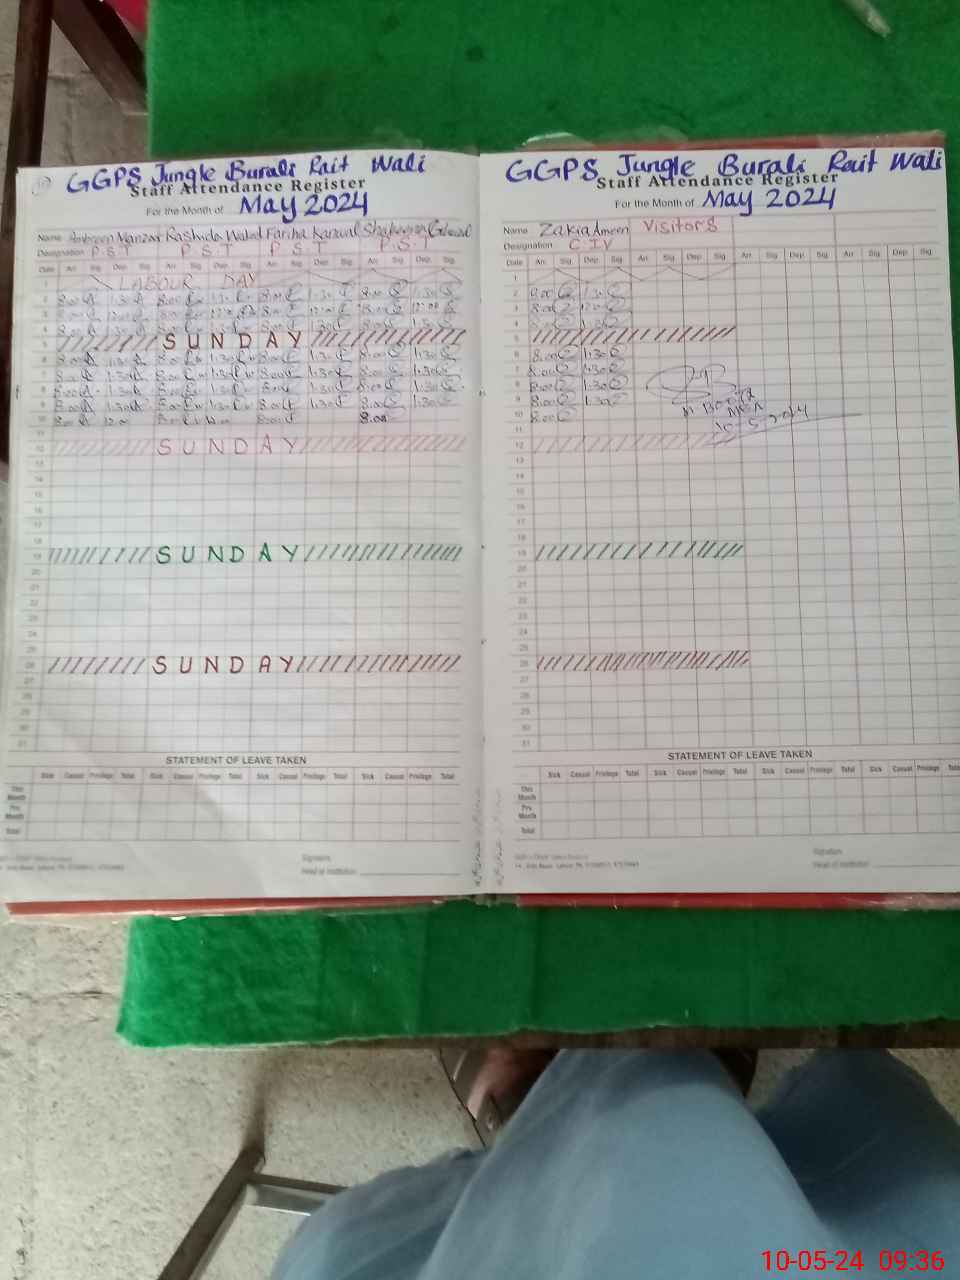 GGPS Jungle Burali Rait Wali
Staff Attendance Register
For the Month of May 2024
Name Ambreen Manzar Rashida Wahid Fariha Kanwal
Designation P.S.T P.S.T P.S.T P.S.T
Date Arr. Sig. Dep. Sig. Arr. Sig. Dep. Sig. Arr. Sig. Dep. Sig. Arr. Sig. Dep. Sig.
1 LABOUR DAY
2 8.00 1.30 8.00 1.30 8.00 1.30 8.00 1.30
3 8.00 12.00 8.00 12.00 8.00 12.00 8.00 12.00
4 8.00 1.30 8.00 1.30 8.00 1.30 8.00 1.30
5 SUNDAY
6 8.00 1.30 8.00 1.30 8.00 1.30 8.00 1.30
7 8.00 1.30 8.00 1.30 8.00 1.30 8.00 1.30
8 8.00 1.30 8.00 1.30 8.00 1.30 8.00 1.30
9 8.00 1.30 8.00 1.30 8.00 1.30 8.00 1.30
10 8.00 12.00 8.00 8.00 8.00
11
12 SUNDAY
13
14
15
16
17
18
19 SUNDAY
20
21
22
23
24
25
26 SUNDAY
27
28
29
30
31
STATEMENT OF LEAVE TAKEN
Sick Casual Privilege Total Sick Casual Privilege Total Sick Casual Privilege Total Sick Casual Privilege Total
This Month
Prv. Month
Total
Signature
Head of Institution
GGPS Jungle Burali Rait Wali
Staff Attendance Register
For the Month of May 2024
Name Zakia Ameen Visitors
Designation C.IV
Date Arr. Sig. Dep. Sig. Arr. Sig. Dep. Sig. Arr. Sig. Dep. Sig. Arr. Sig. Dep. Sig.
1
2 8.00 1.30
3 8.00 12.00
4
5
6 8.00 1.30
7 8.00 1.30
8 8.00 1.30
9 8.00 1.30
10 8.00
MEA
10-5-2024
11
12
13
14
15
16
17
18
19
20
21
22
23
24
25
26
27
28
29
30
31
STATEMENT OF LEAVE TAKEN
Sick Casual Privilege Total Sick Casual Privilege Total Sick Casual Privilege Total Sick Casual Privilege Total
This Month
Prv. Month
Total
Signature
Head of Institution
10-05-24 09:36